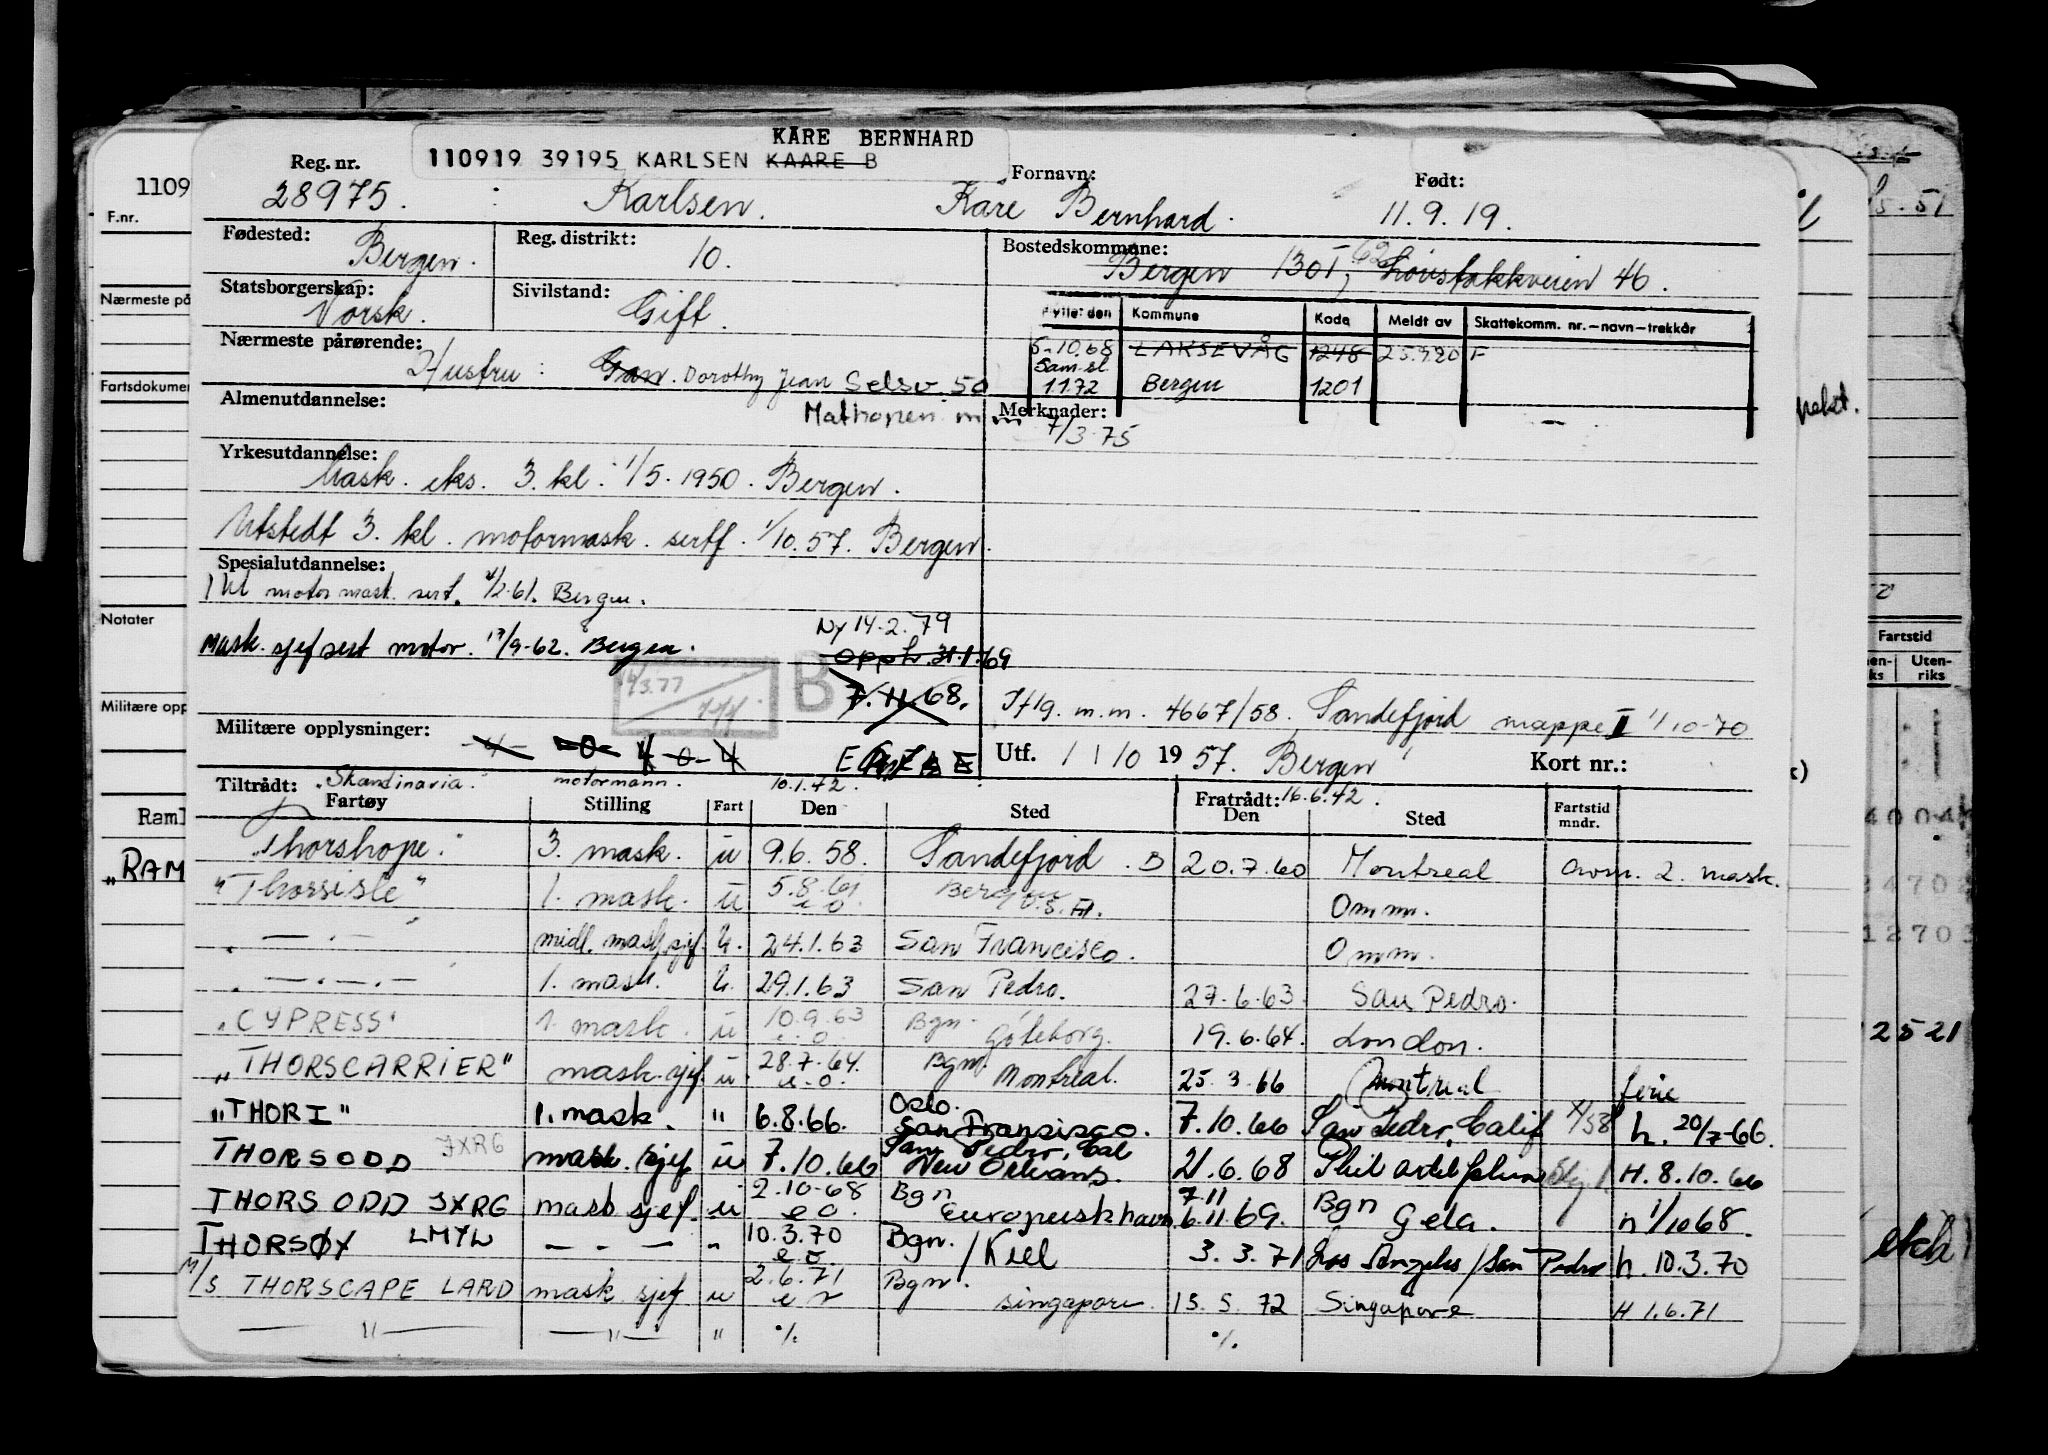 KÅRE BERNHARD
110919 39195 KARLSEN KAARE B
Reg. nr. Fornavn: Født:
28975. Karlsen. Kåre Bernhard. 11.9.19.
1109
F.nr.
Fødested: Bergen. Reg. distrikt: 10. Bostedskommune: Bergen 1301, Løvstakkveien 46.
Statsborgerskap: Norsk. Sivilstand: Gift.
Nærmeste på
Flyttet den Kommune Kode Meldt av Skattekomm. nr.-navn-trekkår
5-10.68 LAKSEVÅG 1248 F
Sam.sl.
1172 Bergen 1201
Nærmeste pårørende: Hustru: Dorothy Jean Selsv. 50
Mathopen
Fartsdokumen
Almenutdannelse: Merknader: 7/3.75
Yrkesutdannelse: Mask. eks. 3. kl. 1/5. 1950. Bergen.
Utstedt 3. kl. motormask. sertf. 1/10.57. Bergen.
Spesialutdannelse:
1 kl motor mask. sert. 1/2.61. Bergen.
Notater
Ny 14.2.79
Mask. sjef sert motor. 17/9-62. Bergen.
Opph. 31.1.69
14/3.77 B
7.11.68.
Militære opp
Militære opplysninger:
4667/58. Sandefjord mappe II 1/10-70
Utf. 1/10 1957. Bergen Kort nr.:
Fartstid
Uten-
riks
Tiltrådt: "Skandinavia" motormann. 10.1.42. Fratrådt: 16.6.42.
Fartøy Stilling Fart Den Sted Den Sted Fartstid mndr.
"Thorshope" 3. mask. u 9.6.58. Sandefjord. B 20.7.60 Montreal avm. 2. mask.
"RAM
"Thorsisle" 1. mask. u 5.8.61 e.o. Bergen U.S.A. Omm.
" — . — midl. mask.sjef. u. 24.1.63 San Francisco. Omm.
" — . — . — 1. mask. u. 29.1.63 San Pedro. 27.6.63. San Pedro.
"CYPRESS" 1. mask. u 10.9.63 e.o. Bgn. Göteborg. 19.6.64. London.
"THORSCARRIER" mask.sjef. u. 28.7.64. e.o. Bgn. Montreal. 25.3.66 Montreal ferie
"THOR I" 1. mask. " 6.8.66. Oslo. San Fransisco. 7.10.66 San Pedro, Calif h. 20/7-66.
THORSODD JXRG mask.sjef u 7.10.66 San Pedro, Cal New Orleans. 21.6.68 H. 8.10.66
THORSODD JXRG mask sjef. u 2.10-68 e o. Bgn Europuskhavn 7.11 6.11.69. Bgn Gela. h 1/10 68.
THORSØY LMYW — . — " 10.3.70 e.o. Bgn. / Kiel 3.3.71 Los Angeles / San Pedro h. 10.3.70
M/S THORSCAPE LARD mask sjef u 2.6.71 Bgn. singapore. 15.5.72 Singapore H 1.6.71
— " — — " — " %. %.
12521